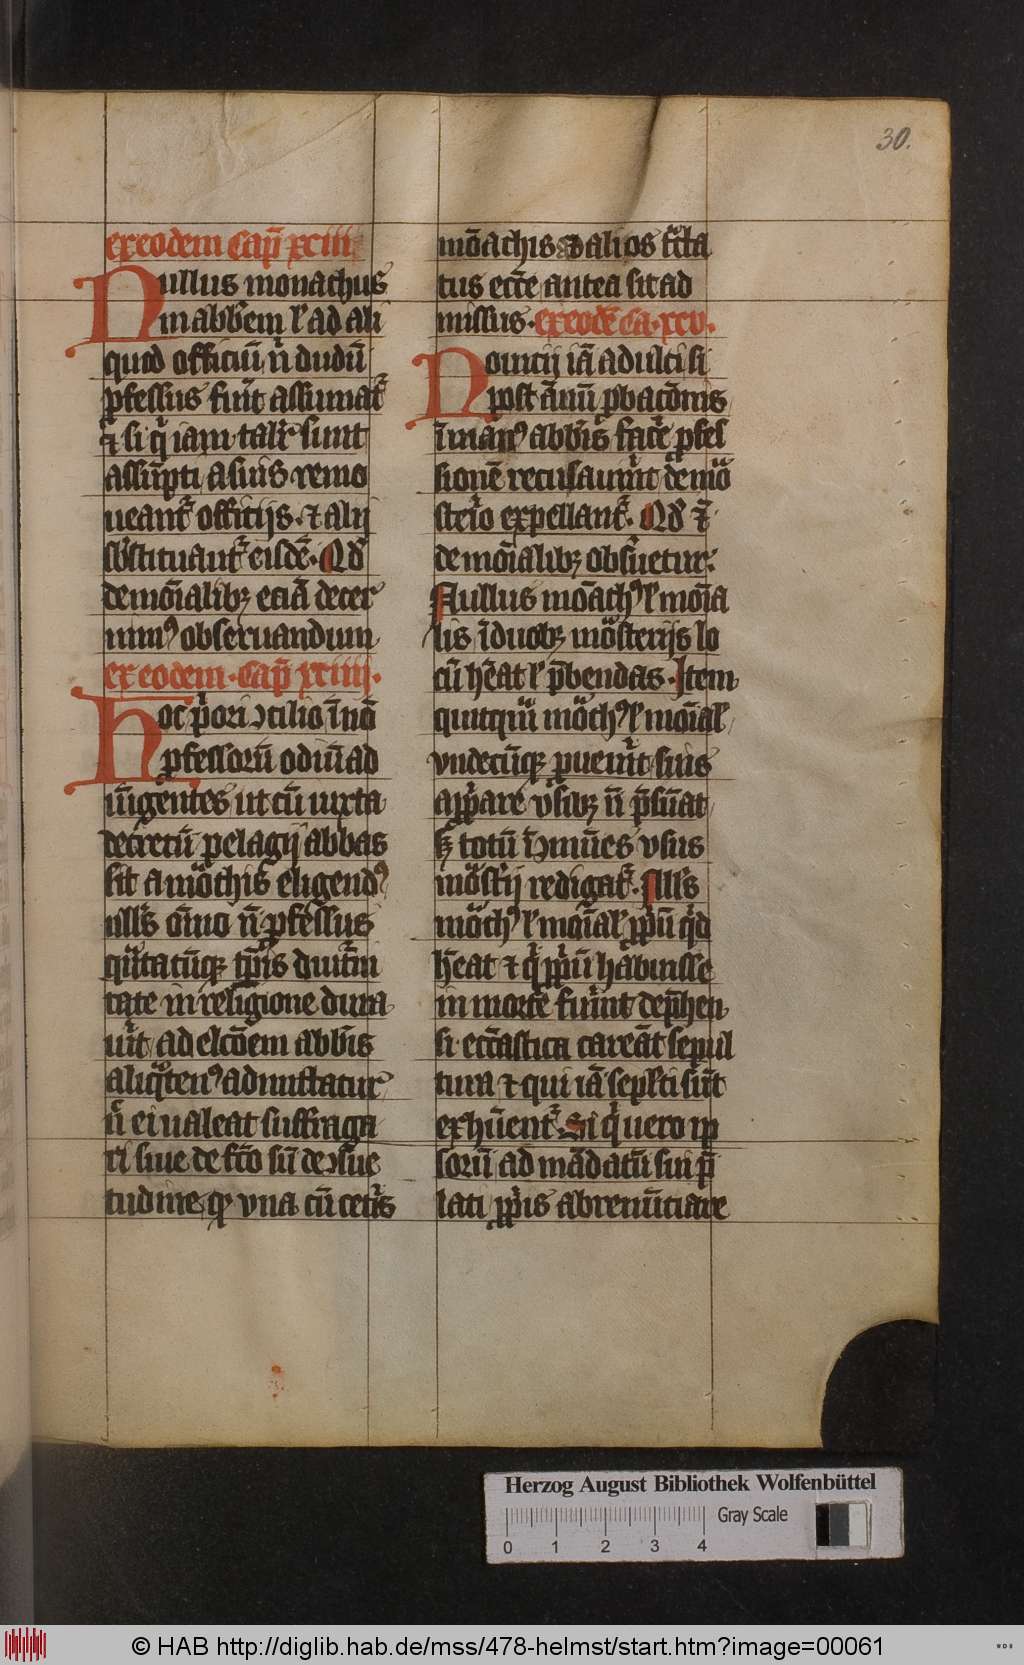 30.
ex eodem Cap̄ xciii
Nullus monachus
in abb̄em ł ad ali
quod officiū n̄ dudū
ꝓfessus fūit assumat᷑
⁊ si q̄ iam talit᷑ sunt
assūpti a suis remo
ueant᷑ officijs. ⁊ alij
sb̄stituant᷑ eisdē. Qđ
de mōialibꝫ eciā decer
nimꝰ obseruandum
ex eodem. Cap̄ xciiii.
Hoc p̄ori ↄcilio ī nō
ꝓfessorū odiū ad
iūgentes ut cū iuxta
decretū pelagij abbas
sit a mōchis eligendꝰ
ullꝰ om̄ino n̄ ꝓfessus
qᷓtacūqꝫ tp̄is diut᷑ni
tate in religione dura
u᷑it ad elc̄oem abb̄is
aliqͦtenꝰ admittatur
n̄ ei ualeat suffraga
ri siue de fc̄o siū de ↄsue
tudine, qꝫ vna cū cet᷑is
mōachis ad alios t᷑sla
tus ecc̄e antea sit ad
missus. ex eodē Ca. xcv.
Nouicij iā adulti si
post ānū ꝓbac̄onis
ī manꝰ abb̄is fac᷑e ꝓfes
sionē recusau᷑int de mō
ster̄io expellant᷑. Qđ ⁊
de mōialibꝫ obs᷑uetur.
Nullus mōachꝰ ł mōia
lis ī duobꝫ mōsterijs lo
cū hēat ł p̄bendas. Item
quitquid mōchꝰ ł moīał
vndecūqꝫ ꝓuen᷑it suis
app̄are v᷑sibꝫ n̄ p̄sūat
sꝫ totū ī ↄmūes vsus
mōst᷑ij redigat᷑. Alls
mōchꝰ ł moīał ꝓp̄ū qͥd
hēat ⁊ q̄ ꝓp̄ū habuisse
in morte fu᷑int dep̄hen
si ecc̄astica careāt sepul
tura ⁊ qui iā sepl̄ti sūt
exhūent᷑. Si q̄s uero ip
sorū ad mādatū sui p̄
lati ꝓp̄is abrenūtiare
Herzog August Bibliothek Wolfenbüttel
Gray Scale
0 1 2 3 4
© HAB http://diglib.hab.de/mss/478-helmst/start.htm?image=00061